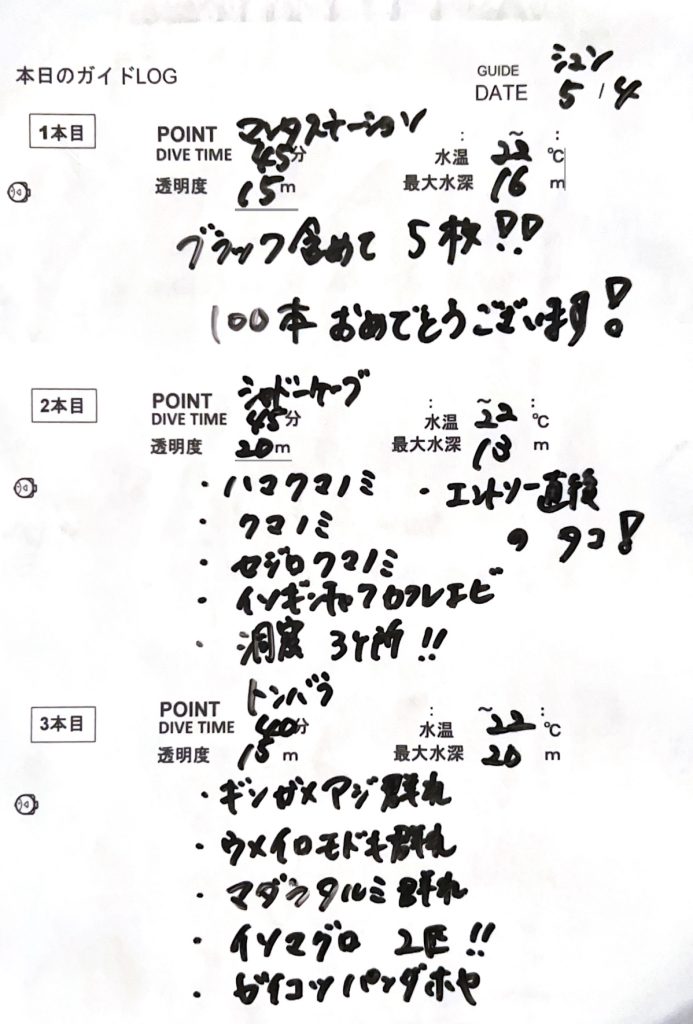 本日のガイドLOG
GUIDE シュン
DATE 5 / 4
1本目
POINT マンタステーション
: ～ :
DIVE TIME 45分 水温 22 ℃
透明度 15m 最大水深 16 m
ブラック含めて 5枚!!
100本 おめでとうございます!
2本目
POINT シャドーケーブ
: ～ :
DIVE TIME 45分 水温 22 ℃
透明度 20m 最大水深 13 m
・ハマクマノミ ・エントリー直後
・クマノミ のタコ!
・セジロクマノミ
・イソギンチャクモエビ
・洞窟 3ヶ所!!
3本目
POINT トンバラ
: ～ :
DIVE TIME 40分 水温 22 ℃
透明度 15m 最大水深 20 m
・ギンガメアジ群れ
・ウメイロモドキ群れ
・マダラタルミ群れ
・イソマグロ 2匹!!
・ガイコツパンダホヤ